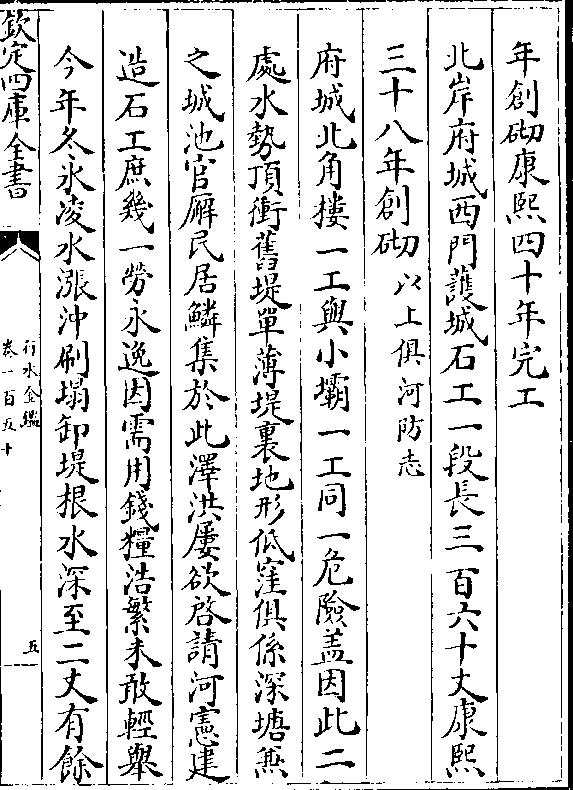 年創砌康熙四十年完工
北岸府城西門護城石工一段長三百六十丈康熙
三十八年創砌以上俱河防志
府城北角樓一工與小壩一工同一危險盖因此二
處水勢頂衝舊堤單薄堤裏地形低窪俱係深塘兼
之城池官廨民居鱗集於此澤洪屢欲啓請河憲建
造石工庶幾一勞永逸因需用錢糧浩繁未敢輕舉
今年冬氷凌水漲冲刷塌卸堤根水深至二丈有餘
欽定四庫全書
行水金鑑
卷一百五十
五